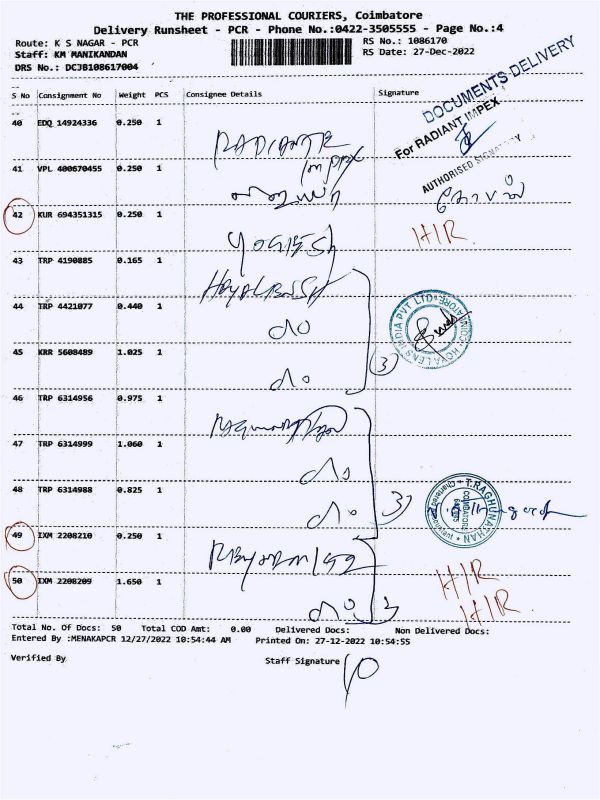 THE PROFESSIONAL COURIERS, Coimbatore
Delivery Runsheet - PCR - Phone No.:0422-3505555 - Page No.:4
Route: K S NAGAR - PCR
RS No.: 1086170
Staff: KM MANIKANDAN
RS Date: 27-Dec-2022
DRS No.: DCJB108617004
S No Consignment No Weight PCS Consignee Details Signature
DOCUMENTS DELIVERY
For RADIANT IMPEX
AUTHORISED SIGNATORY
40 EDQ 14924336 0.250 1 RADIANTE
41 VPL 400670455 0.250 1
42 KUR 694351315 0.250 1 YOGESH H/R.
43 TRP 4190885 0.165 1
44 TRP 4421077 0.440 1 do
45 KRR 5608489 1.025 1 do 3
HOYA LENS INDIA PVT LTD COIMBATORE
46 TRP 6314956 0.975 1
47 TRP 6314999 1.060 1 do
48 TRP 6314988 0.825 1 do 3
T.RAGHUNATHAN
Chartered Accountant
COIMBATORE
49 IXM 2208210 0.250 1 H/R
50 IXM 2208209 1.650 1 do H/R.
Total No. Of Docs: 50 Total COD Amt: 0.00 Delivered Docs: Non Delivered Docs:
Entered By :MENAKAPCR 12/27/2022 10:54:44 AM Printed On: 27-12-2022 10:54:55
Verified By Staff Signature